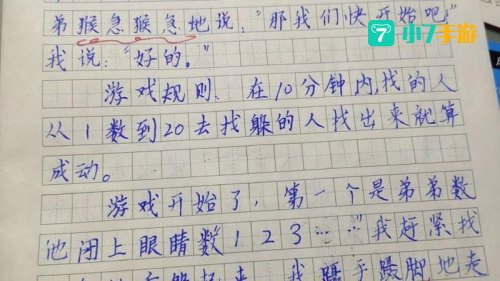 弟猴急猴急地说："那我们快开始吧"
我说："好的。"
小7手游
游戏规则：在10分钟内，找的人
从1数到20去找躲的人找出来就算
成动。
游戏开始了，第一个是弟弟数
他闭上眼睛数123……"我赶紧找
我蹑手蹑脚地走